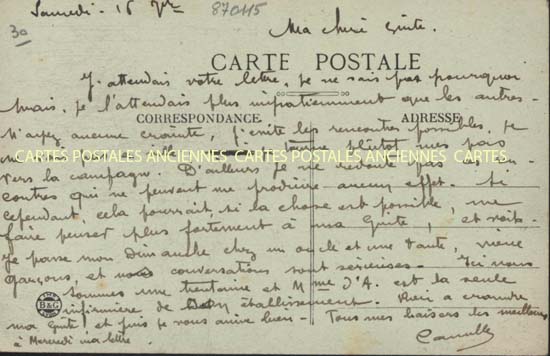 Samedi - 16 9bre
870115
30
Ma chère Guite.
CARTE POSTALE
J'attendais votre lettre, je ne sais pas pourquoi
mais, je l'attendais plus impatiemment que les autres -
CORRESPONDANCE
ADRESSE
N'ayez aucune crainte, j'évite les rencontres possibles, je
plutôt mes pas
CARTES POSTALES ANCIENNES CARTES POSTALES ANCIENNES CARTES
vers la campagne. D'ailleurs je ne redoute pas les ren-
contres qui ne peuvent me produire aucun effet. Si
cependant, cela pourrait, si la chose est possible, me
faire penser plus fortement à ma Guite, et voilà.
Je passe mon Dimanche chez un oncle et une tante, vieux
garçons, et nos conversations sont sérieuses. Ici nous
sommes une trentaine et Mme d'A. est la seule
infirmière de l'établissement. Rien à craindre
IMP.
B&G
ma Guite, et puis je vous aime bien - Tous mes baisers les meilleurs
à Mercredi ma lettre.
Camille